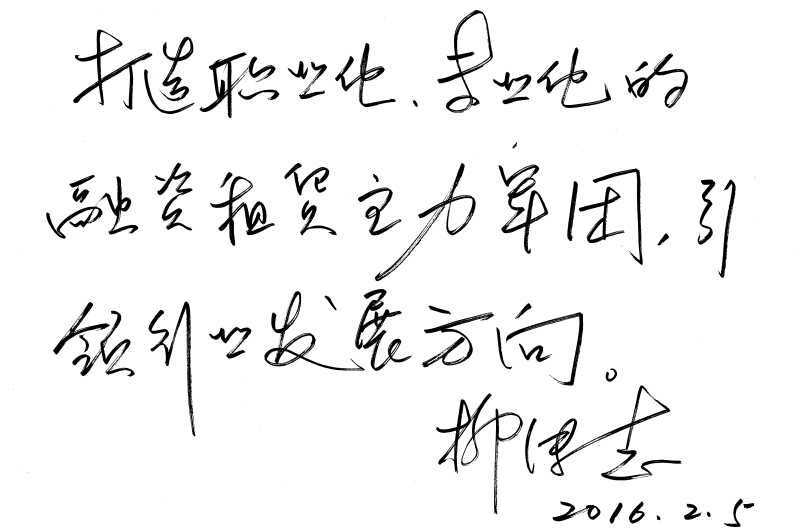 打造职业化、专业化的
融资租赁主力军团,引
领行业发展方向。
柳传志
2016.2.5